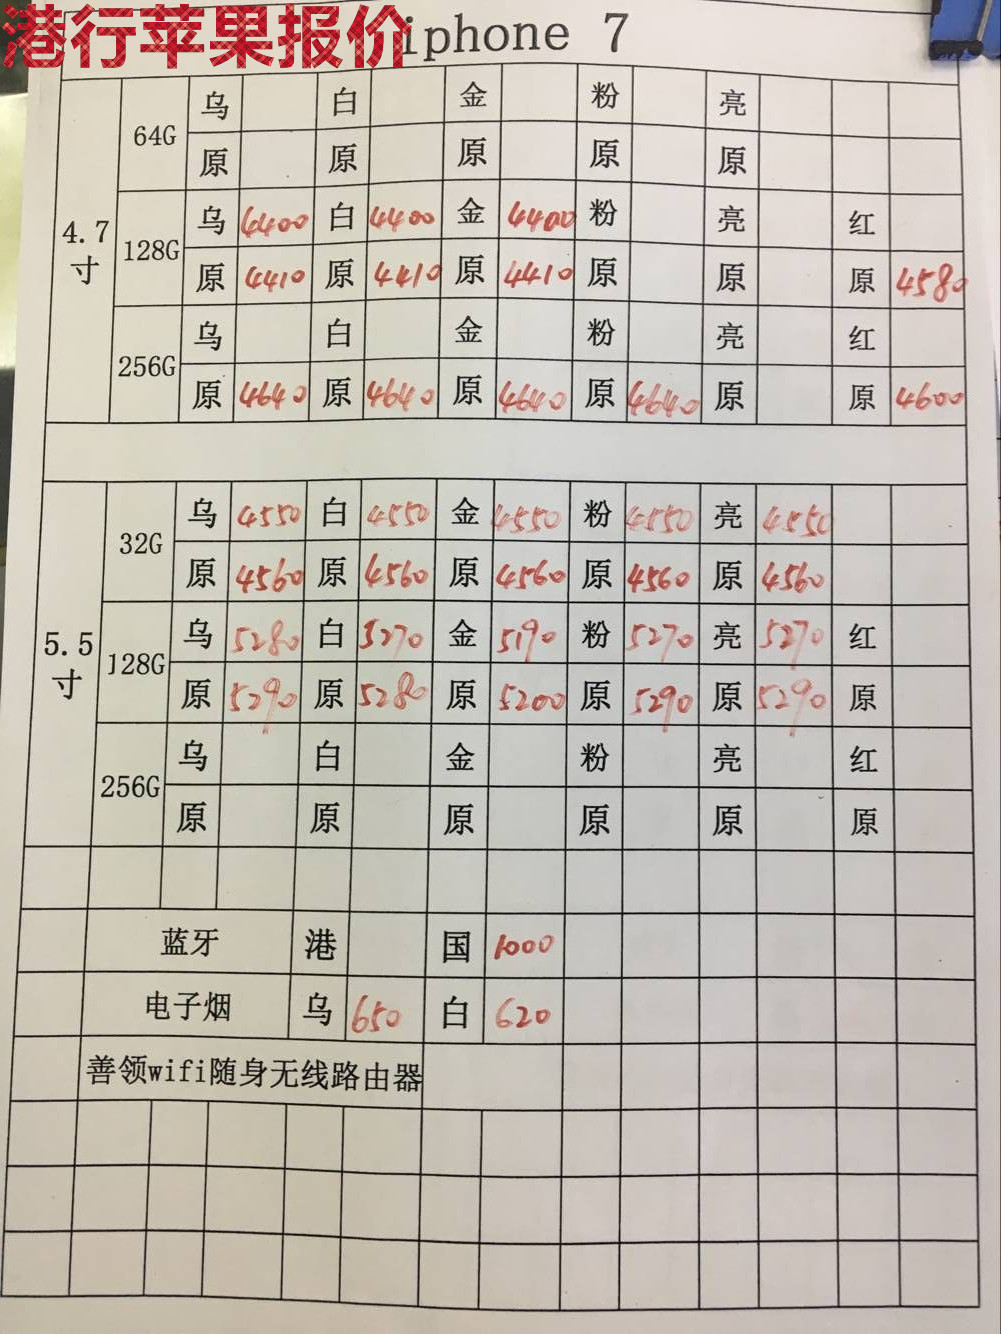 港行苹果报价
iphone 7
4.7寸
64G 乌 白 金 粉 亮
原 原 原 原 原
128G 乌 4400 白 4400 金 4400 粉 亮 红
原 4410 原 4410 原 4410 原 原 原 4580
256G 乌 白 金 粉 亮 红
原 4640 原 4640 原 4640 原 4640 原 原 4600
5.5寸
32G 乌 4550 白 4550 金 4550 粉 4550 亮 4550
原 4560 原 4560 原 4560 原 4560 原 4560
128G 乌 5280 白 5270 金 5190 粉 5270 亮 5270 红
原 5290 原 5280 原 5200 原 5290 原 5290 原
256G 乌 白 金 粉 亮 红
原 原 原 原 原 原
蓝牙 港 国 1000
电子烟 乌 650 白 620
善领wifi随身无线路由器